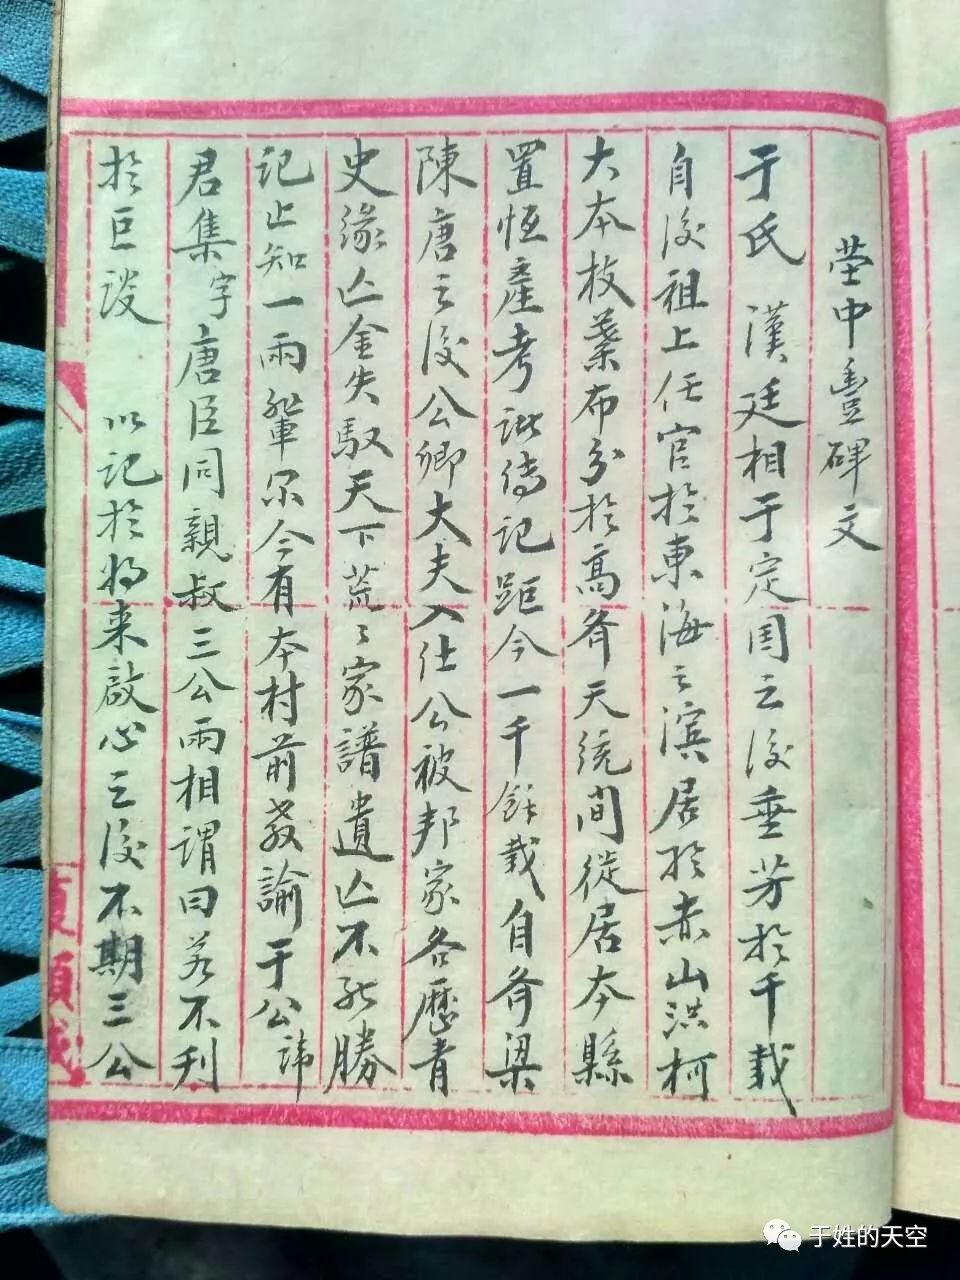 茔中豊碑文
于氏 漢廷相于定国之後垂芳於千載
自後祖上任官於東海之濱居於赤山洪柯
大本枝葉布分於高齐天統间從居本縣
置恒產考訛传记距今一千餘载自齐梁
陳唐之後公卿大夫入仕公被邦家各歷青
史缘亡金失馭天下荒〻家譜遺亡不能勝
记止知一兩輩尔今有本村前教諭于公諱
君集字唐臣同親叔三公兩相謂曰若不刊
於巨碑 以记於将来啟心之後不期三公
于姓的天空